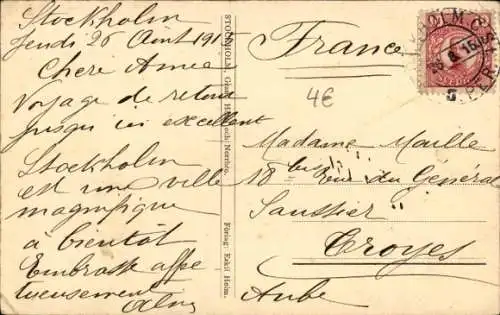 Stockholm
Jeudi 26 Août 1915
Chère Amie
Voyage de retour
jusqu'ici excellent
Stockholm
est une ville
magnifique
à bientôt
Embrasse affec
tueusement
STOCKHOLM,
Förlag: Eskil Holm.
France
4€
Madame Maille
18 bis Rue du Général
Saussier
Troyes
Aube